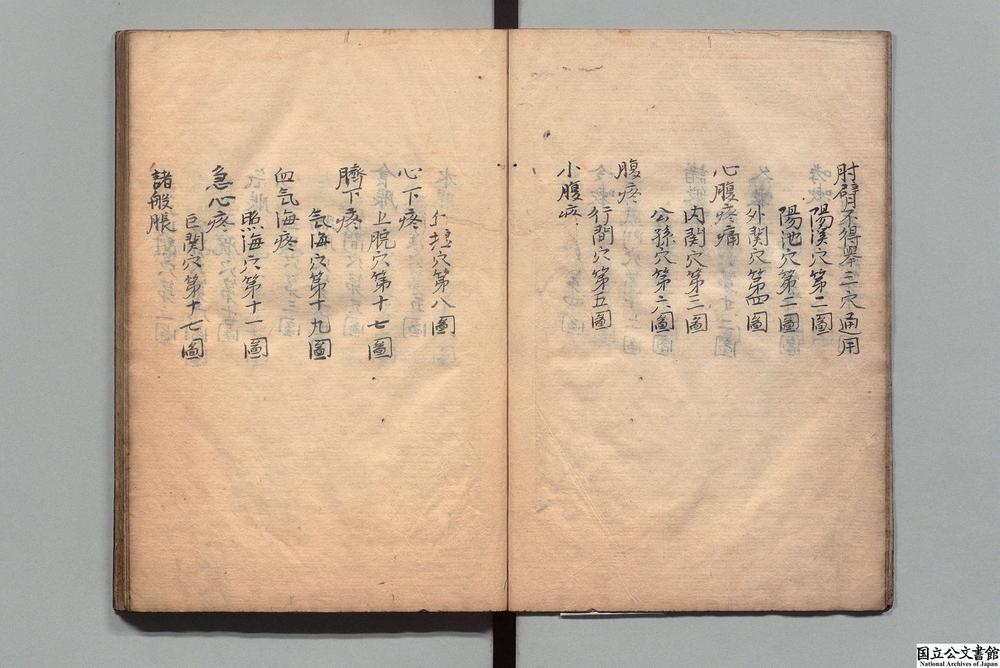 肘臂不得舉三穴通用
陽溪穴第二圖
陽池穴第二圖
外関穴第四圖
心腹疼痛
内関穴第三圖
公孫穴第六圖
腹疼
行間穴第五圖
小腹疼
穴第八圖
心下疼
上脘穴第十七圖
臍下疼
気海穴第十九圖
血気海疼
照海穴第十一圖
急心疼
巨関穴第十七圖
諸般脹
国立公文書館
National Archives of Japan